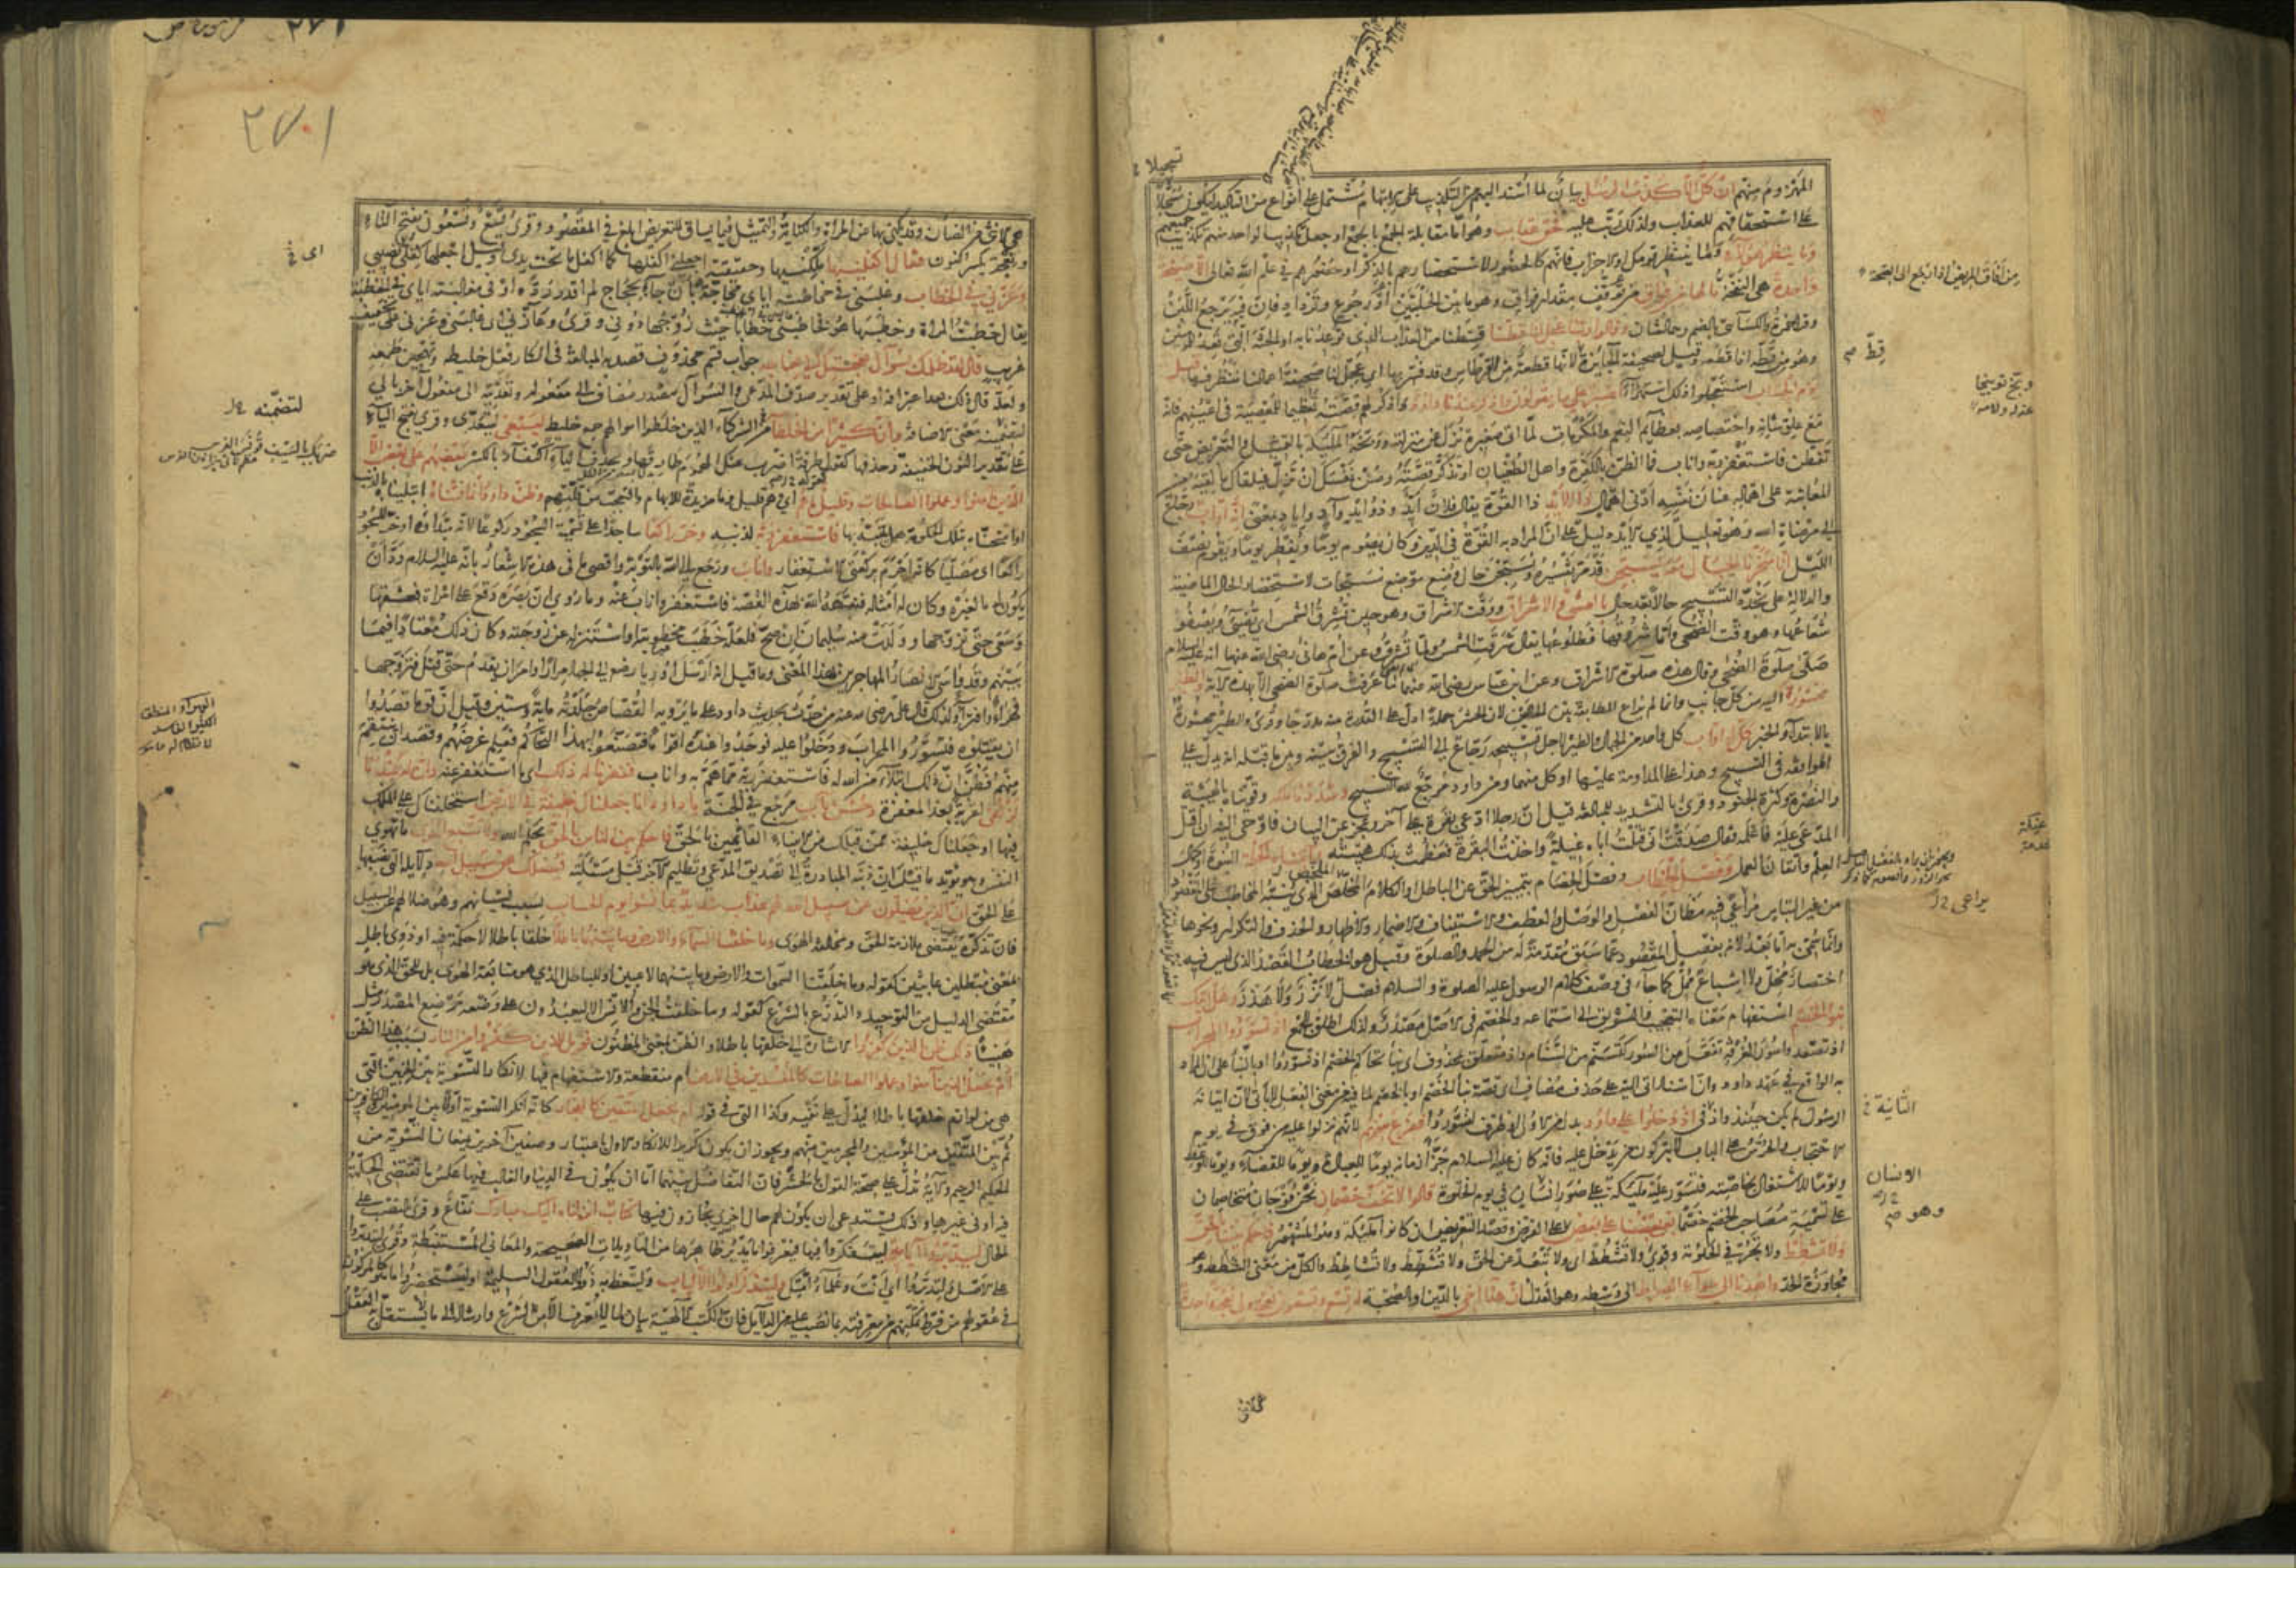 المهزوم منهم ان كل الا كذب الرسل بيان لما اسند اليهم من التكذيب على الابهام مشتمل على انواع من التاكيد ليكون تسجيلا
على استحقاقهم للعذاب ولذلك رتب عليه فحق عقاب وهو اما مقابلة الجمع بالجمع او جعل تكذيب الواحد منهم تكذيب جميعهم
وما ينظر هؤلاء وما ينتظر قومك او الاحزاب فانهم كالحضور لاستحضارهم بالذكر او حضورهم في علم الله تعالى الا صيحة
واحدة هي النفخة ما لها من فواق من توقف مقدار فواق وهو ما بين الحلبتين او رجوع وترداد فان فيه يرجع اللبن
وقرا حمزة والكسائي بالضم وهما لغتان وقالوا ربنا عجل لنا قطنا قسطنا من العذاب الذي توعدنا به او الجنة التي تعد للمؤمنين
وهو من قطه اذا قطعه وقيل لصحيفة الجائزة لانها قطعة من القرطاس وقد فسر بها اي عجل لنا صحيفة اعمالنا ننظر فيها قبل
يوم الحساب استعجلوا ذلك استهزاء اصبر على ما يقولون واذكر عبدنا داود واذكر لهم قصته تعظيما للمعصية في اعينهم فانه
مع علو شانه واختصاصه بعظائم النعم والمكرمات لما اتى صغيرة نزل عن منزلته ووبخه الملائكة بالتمثيل والتعريض حتى
تفطن فاستغفر ربه واناب فما الظن بالكفرة واهل الطغيان او تذكر قصته وصن نفسك ان تزل فيلقاك ما لقيه من
المعاتبة على اهماله عنان نفسه ادنى اهمال ذا الايد ذا القوة يقال فلان ايد وذو ايد وآد واياد بمعنى انه اواب رجاع
الى مرضاة الله وهو تعليل للايد دليل على ان المراد به القوة في الدين وكان يصوم يوما ويفطر يوما ويقوم نصف
الليل انا سخرنا الجبال معه يسبحن قد مر تفسيره ويسبحن حال وضع موضع مسبحات لاستحضار الحال الماضية
والدلالة على تجدد التسبيح حالا بعد حال بالعشي والاشراق ووقت الاشراق وهو حين تشرق الشمس اي تضيء ويصفو
شعاعها وهو وقت الضحى واما شروقها فطلوعها يقال شرقت الشمس ولما تشرق وعن ام هانئ رضي الله عنها انه عليه السلام
صلى صلوة الضحى وقال هذه صلوة الاشراق وعن ابن عباس رضي الله عنهما ما عرفت صلوة الضحى الا بهذه الاية والطير
محشورة اليه من كل جانب وانما لم يراع المطابقة بين الحالين لان الحشر جملة ادل على القدرة منه مدرجا وقرئ والطير محشورة
بالابتداء والخبر كل له اواب كل واحد من الجبال والطير لاجل تسبيحه رجاع الى التسبيح والفرق بينه وبين ما قبله انه يدل على
الموافقة في التسبيح وهذا على المداومة عليها او كل منهما ومن داود مرجع لله التسبيح وشددنا ملكه وقويناه بالهيبة
والنصرة وكثرة الجنود وقرئ بالتشديد للمبالغة قيل ان رجلا ادعى بقرة على آخر وعجز عن البيان فاوحى اليه ان اقتل
المدعى عليه فاعلمه فقال صدقت اني قتلت اباه غيلة واخذت البقرة فعظمت بذلك هيبته وآتيناه الحكمة النبوة او كمال
العلم واتقان العمل وفصل الخطاب وفصل الخصام بتمييز الحق عن الباطل او الكلام الملخص الذي ينبه المخاطب على المقصود
من غير التباس يراعى فيه مظان الفصل والوصل والعطف والاستيناف والاضمار والاظهار والحذف والتكرار ونحوها
وانما سمي به اما بعد لانه يفصل المقصود عما سبق مقدمة له من الحمد والصلوة وقيل هو الخطاب القصد الذي ليس فيه
اختصار مخل ولا اشباع ممل كما جاء في وصف كلام الرسول عليه الصلوة والسلام فصل لا نزر ولا هذر وهل اتيك
نبؤ الخصم استفهام معناه التعجيب والتشويق الى استماعه والخصم في الاصل مصدر ولذلك اطلق للجمع اذ تسوروا المحراب
اذ تصعدوا سور الغرفة تفعل من السور كتسنم من السنام واذ متعلق بمحذوف اي نبأ تحاكم الخصم اذ تسوروا او بالنبأ على ان المراد
به الواقع في عهد داود وان اسناد اتى اليه على حذف مضاف اي قصة نبأ الخصم او بالخصم لما فيه من معنى الفعل لا باتى لان اتيانه
الرسول لم يكن حينئذ واذ في اذ دخلوا على داود بدل من الاولى او ظرف لتسوروا ففزع منهم لانهم نزلوا عليه من فوق في يوم
الاحتجاب والحرس على الباب لا يتركون من يدخل عليه فانه كان عليه السلام جزأ زمانه يوما للعبادة ويوما للقضاء ويوما للوعظ
ويوما للاشتغال بخاصته فتسور عليه ملائكة على صور انسان في يوم الخلوة قالوا لا تخف خصمان نحن فوجان متخاصمان
على تسمية مصاحب الخصم خصما بغى بعضنا على بعض على الفرض وقصد التعريض ان كانوا ملائكة وهو المشهور فاحكم بيننا بالحق
ولا تشطط ولا تجر في الحكومة وقرئ ولا تشطط اي ولا تبعد عن الحق ولا تشطط ولا تشاطط والكل من معنى الشطط وهو
مجاوزة الحد واهدنا الى سواء الصراط الى وسطه وهو العدل ان هذا اخي بالدين والصحبة له تسع وتسعون نعجة ولي نعجة واحدة
تسجيلا
من افاق المريض اذا رجع الى الصحة
قط صح
غيلة
يراعى
الثانية
الانسان
وهو صح
٢٧١
٢٧١
هي الانثى من الضأن وقد يكنى بها عن المراة والكناية والتمثيل فيما يساق للتعريض ابلغ في المقصود وقرئ تسع وتسعون بفتح التاء
ونعجة بكسر النون فقال اكفلنيها ملكنيها وحقيقته اجعلني اكفلها كما اكفل ما تحت يدي وقيل اجعلها كفلي اي نصيبي
وعزني في الخطاب وغلبني في مخاطبته اياي محاجة بان جاء بحجاج لم اقدر رده او في مغالبته اياي في الخطبة
يقال خطبت المراة وخطبها هو فخاطبني خطابا حيث زوجها دوني وقرئ وعازني اي غالبني وعزني على تخفيف
غريب قال لقد ظلمك بسؤال نعجتك الى نعاجه جواب قسم محذوف قصد به المبالغة في انكار فعل خليطه وتهجين طمعه
ولعله قال ذلك بعد اعترافه او على تقدير صدق المدعي والسؤال مصدر مضاف الى مفعوله وتعديته الى مفعول آخر بالى
لتضمينه معنى الاضافة وان كثيرا من الخلطاء من الشركاء الذين خلطوا اموالهم جمع خليط ليبغي ليتعدى وقرئ بفتح الياء
على تقدير النون الخفيفة وحذفها كقوله اضرب عنك الهموم طارقها وبحذف الياء اكتفاء بالكسر بعضهم على بعض الا
الذين آمنوا وعملوا الصالحات وقليل ما هم اي هم قليل وما مزيدة للابهام والتعجب من قلتهم وظن داود انما فتناه ابتليناه بالذنب
او امتحناه بتلك الحكومة هل يتنبه بها فاستغفر ربه لذنبه وخر راكعا ساجدا على تسمية السجود ركوعا لانه مبدأه او خر للسجود
راكعا اي مصليا كانه احرم بركعتي الاستغفار واناب ورجع الى الله بالتوبة واقصى ما في هذه الاشعار بانه عليه السلام ود ان
يكون له ما لغيره وكان له امثاله فنبهه الله بهذه القصة فاستغفر واناب عنه وما روي ان بصره وقع على امراة فعشقها
وسعى حتى تزوجها وولدت منه سليمان ان صح فلعله خطب مخطوبته او استنزله عن زوجته وكان ذلك معتادا فيما
بينهم وقد واسى الانصار المهاجرين بهذا المعنى وما قيل انه ارسل اوريا الى الجهاد مرارا وامر ان يقدم حتى قتل فتزوجها
فهزء وافتراء ولذلك قال علي رضي الله عنه من حدث بحديث داود على ما يرويه القصاص جلدته مائة وستين وقيل ان قوما قصدوا
ان يقتلوه فتسوروا المحراب ودخلوا عليه فوجدوا عنده اقواما فتصنعوا بهذا التحاكم فعلم غرضهم وقصد ان ينتقم
منهم فظن ان ذلك ابتلاء من الله له فاستغفر ربه مما هم به واناب فغفرنا له ذلك اي ما استغفر عنه وان له عندنا
لزلفى لقربة بعد المغفرة وحسن مآب مرجع في الجنة يا داود انا جعلناك خليفة في الارض استخلفناك على الملك
فيها او جعلناك خليفة ممن قبلك من الانبياء القائمين بالحق فاحكم بين الناس بالحق بحكم الله ولا تتبع الهوى ما تهوي
النفس وهو يؤيد ما قيل ان ذنبه المبادرة الى تصديق المدعي وتظليم الآخر قبل مسئلته فيضلك عن سبيل الله دلائله التي نصبها
على الحق ان الذين يضلون عن سبيل الله لهم عذاب شديد بما نسوا يوم الحساب بسبب نسيانهم وهو ضلالهم عن السبيل
فان تذكره يقتضي ملازمة الحق ومخالفة الهوى وما خلقنا السماء والارض وما بينهما باطلا خلقا باطلا لا حكمة فيه او ذوي باطل
بمعنى مبطلين عابثين كقوله وما خلقنا السموات والارض وما بينهما لاعبين او للباطل الذي هو متابعة الهوى بل للحق الذي هو
مقتضى الدليل من التوحيد والتدرع بالشرع كقوله وما خلقت الجن والانس الا ليعبدون على وضعه موضع المصدر مثل
هنيئا ذلك ظن الذين كفروا الاشارة الى خلقها باطلا والظن بمعنى المظنون فويل للذين كفروا من النار بسبب هذا الظن
ام نجعل الذين آمنوا وعملوا الصالحات كالمفسدين في الارض ام منقطعة والاستفهام فيها لانكار التسوية بين الحزبين التي
هي من لوازم خلقها باطلا ليدل على نفيه وكذا التي في قوله ام نجعل المتقين كالفجار كانه انكر التسوية اولا بين المؤمنين والكافرين
ثم بين المتقين من المؤمنين والمجرمين منهم ويجوز ان يكون تكريرا للانكار الاول باعتبار وصفين آخرين يمنعان التسوية من
الحكيم الرحيم والآية تدل على صحة القول بالحشر فان التفاضل بينهما اما ان يكون في الدنيا والغالب فيها عكس ما يقتضي الحكمة
فيه او في غيرها وذلك يستدعي ان يكون لهم حال اخرى يجازون فيها كتاب انزلناه اليك مبارك نفاع وقرئ بالنصب على
الحال ليدبروا آياته ليتفكروا فيها فيعرفوا ما يدبر ظاهرها من التأويلات الصحيحة والمعاني المستنبطة وقرئ ليتدبروا
على الاصل ولتدبروا اي انت وعلماء امتك وليتذكر اولوا الالباب وليتعظ به ذوو العقول السليمة او ليستحضروا ما هو كالمركوز
في عقولهم من فرط تمكنهم من معرفته بما نصب عليه من الدلايل فان الكتب الالهية بيان لما لا يعرف الا من الشرع وارشاد الى ما لا يستقل به العقل
لتضمنه